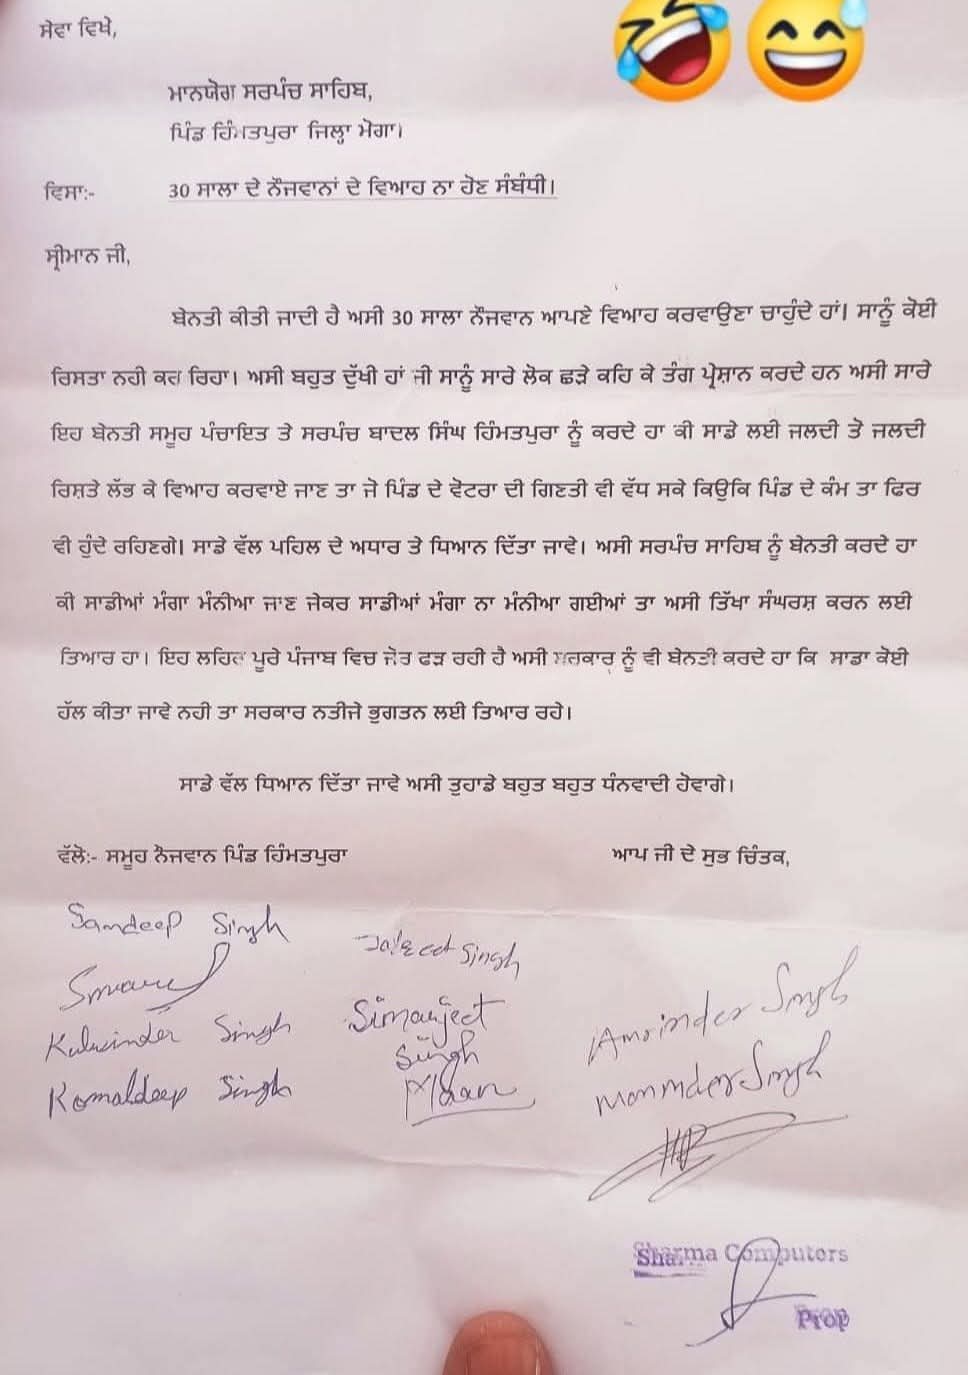 ਸੇਵਾ ਵਿਖੇ,
ਮਾਨਯੋਗ ਸਰਪੰਚ ਸਾਹਿਬ,
ਪਿੰਡ ਹਿੰਮਤਪੁਰਾ ਜਿਲ੍ਹਾ ਮੋਗਾ।
ਵਿਸਾ:- 30 ਸਾਲਾ ਦੇ ਨੌਜਵਾਨਾਂ ਦੇ ਵਿਆਹ ਨਾ ਹੋਣ ਸੰਬੰਧੀ।
ਸ੍ਰੀਮਾਨ ਜੀ,
ਬੇਨਤੀ ਕੀਤੀ ਜਾਦੀ ਹੈ ਅਸੀ 30 ਸਾਲਾ ਨੌਜਵਾਨ ਆਪਣੇ ਵਿਆਹ ਕਰਵਾਉਣਾ ਚਾਹੁੰਦੇ ਹਾਂ। ਸਾਨੂੰ ਕੋਈ
ਰਿਸਤਾ ਨਹੀ ਕਰ ਰਿਹਾ। ਅਸੀ ਬਹੁਤ ਦੁੱਖੀ ਹਾਂ ਜੀ ਸਾਨੂੰ ਸਾਰੇ ਲੋਕ ਛੜੇ ਕਹਿ ਕੇ ਤੰਗ ਪ੍ਰੇਸ਼ਾਨ ਕਰਦੇ ਹਨ ਅਸੀ ਸਾਰੇ
ਇਹ ਬੇਨਤੀ ਸਮੂਹ ਪੰਚਾਇਤ ਤੇ ਸਰਪੰਚ ਬਾਦਲ ਸਿੰਘ ਹਿੰਮਤਪੁਰਾ ਨੂੰ ਕਰਦੇ ਹਾ ਕੀ ਸਾਡੇ ਲਈ ਜਲਦੀ ਤੋ ਜਲਦੀ
ਰਿਸ਼ਤੇ ਲੱਭ ਕੇ ਵਿਆਹ ਕਰਵਾਏ ਜਾਣ ਤਾ ਜੋ ਪਿੰਡ ਦੇ ਵੋਟਰਾ ਦੀ ਗਿਣਤੀ ਵੀ ਵੱਧ ਸਕੇ ਕਿਉਕਿ ਪਿੰਡ ਦੇ ਕੰਮ ਤਾ ਫਿਰ
ਵੀ ਹੁੰਦੇ ਰਹਿਣਗੇ। ਸਾਡੇ ਵੱਲ ਪਹਿਲ ਦੇ ਅਧਾਰ ਤੇ ਧਿਆਨ ਦਿੱਤਾ ਜਾਵੇ। ਅਸੀ ਸਰਪੰਚ ਸਾਹਿਬ ਨੂੰ ਬੇਨਤੀ ਕਰਦੇ ਹਾ
ਕੀ ਸਾਡੀਆਂ ਮੰਗਾ ਮੰਨੀਆ ਜਾਣ ਜੇਕਰ ਸਾਡੀਆਂ ਮੰਗਾ ਨਾ ਮੰਨੀਆ ਗਈਆਂ ਤਾ ਅਸੀ ਤਿੱਖਾ ਸੰਘਰਸ਼ ਕਰਨ ਲਈ
ਤਿਆਰ ਹਾ। ਇਹ ਲਹਿਰ ਪੂਰੇ ਪੰਜਾਬ ਵਿਚ ਜੋਰ ਫੜ ਰਹੀ ਹੈ ਅਸੀ ਸਰਕਾਰ ਨੂੰ ਵੀ ਬੇਨਤੀ ਕਰਦੇ ਹਾ ਕਿ ਸਾਡਾ ਕੋਈ
ਹੱਲ ਕੀਤਾ ਜਾਵੇ ਨਹੀ ਤਾ ਸਰਕਾਰ ਨਤੀਜੇ ਭੁਗਤਨ ਲਈ ਤਿਆਰ ਰਹੇ।
ਸਾਡੇ ਵੱਲ ਧਿਆਨ ਦਿੱਤਾ ਜਾਵੇ ਅਸੀ ਤੁਹਾਡੇ ਬਹੁਤ ਬਹੁਤ ਧੰਨਵਾਦੀ ਹੋਵਾਗੇ।
ਵੱਲੋ:- ਸਮੂਹ ਨੌਜਵਾਨ ਪਿੰਡ ਹਿੰਮਤਪੁਰਾ
ਆਪ ਜੀ ਦੇ ਸੁਭ ਚਿੰਤਕ,
Sandeep Singh
Singh
Kulwinder Singh
Simarjeet
Singh
Amrinder Singh
Komaldeep Singh
Maninder Singh
Sharma Computers
Prop